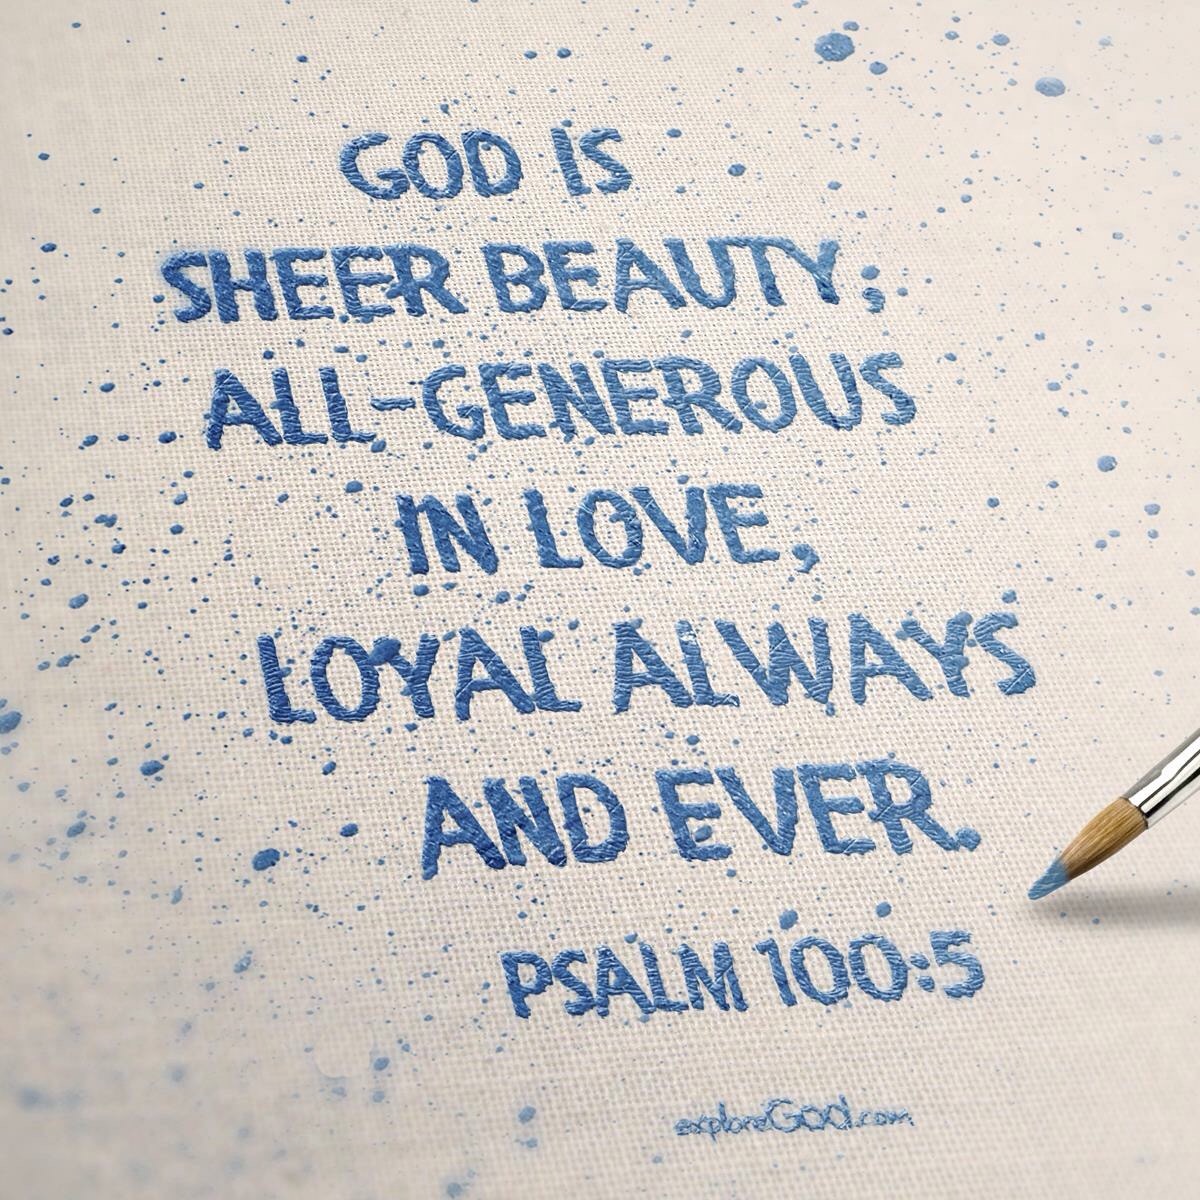 GOD IS
SHEER BEAUTY;
ALL-GENEROUS
IN LOVE,
LOYAL ALWAYS
AND EVER.
PSALM 100:5
exploreGod.com